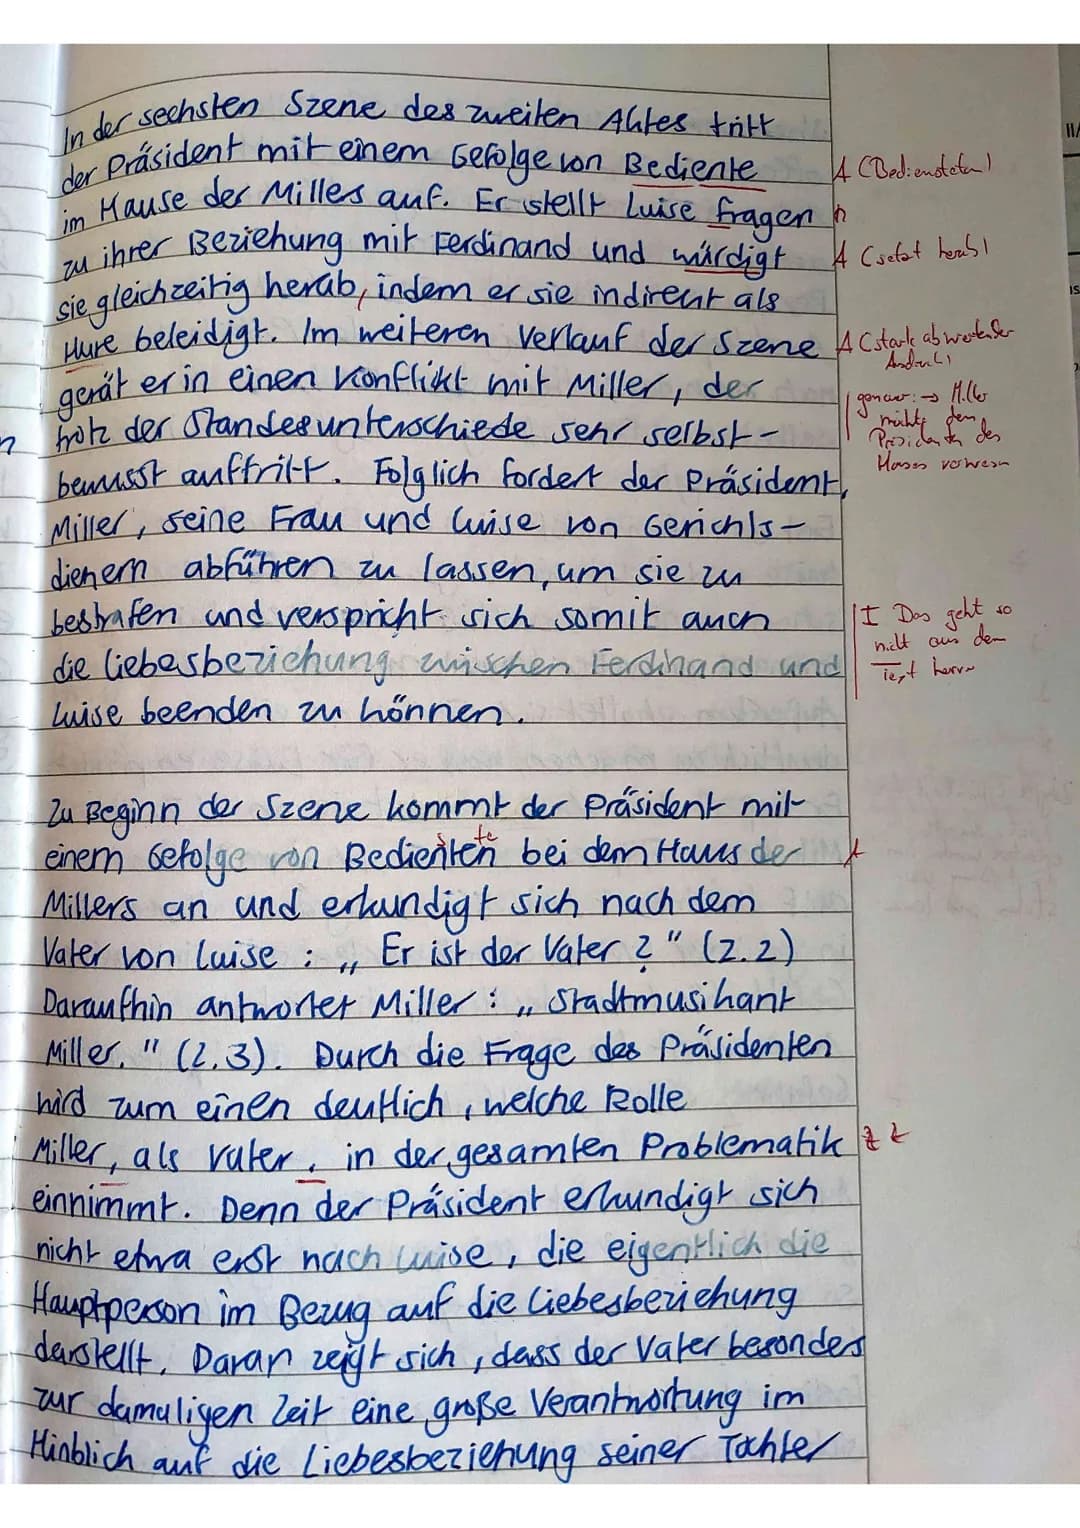 In der sechsten Szene des zweiten Aktes tritt
der Präsident mit einem Gefolge von Bediente
A (Bediensteten)
im Hause der Millers auf. Er stellt Luise fragen
n
zu ihrer Beziehung mit Ferdinand und würdigt
A (setzt herab)
sie gleichzeitig herab, indem er sie indirekt als
Hure beleidigt. Im weiteren Verlauf der Szene
A (stark abwertender
Ausdruck)
gerät er in einen Konflikt mit Miller, der
genauer: → Miller
möchte dem
trotz der Standesunterschiede sehr selbst-
Präsidenten des
Hauses verweisen
bewusst auftritt. Folglich fordert der Präsident,
Miller, seine Frau und Luise von Gerichts-
dienern abführen zu lassen, um sie zu
bestrafen und verspricht sich somit auch
I Das geht so
nicht aus dem
Text hervor
die Liebesbeziehung zwischen Ferdinand und
Luise beenden zu können.
Zu Beginn der Szene kommt der Präsident mit
einem Gefolge von Bedienten bei dem Haus der
Millers an und erkundigt sich nach dem
Vater von Luise : „ Er ist der Vater ? " (Z.2)
Daraufhin antwortet Miller : „ Stadtmusikant
Miller. " (Z.3). Durch die Frage des Präsidenten
wird zum einen deutlich, welche Rolle
Miller, als Vater, in der gesamten Problematik
Z Z
einnimmt. Denn der Präsident erkundigt sich
nicht etwa erst nach Luise, die eigentlich die
Hauptperson im Bezug auf die Liebesbeziehung
darstellt. Daran zeigt sich, dass der Vater besonders
zur damaligen Zeit eine große Verantwortung im
Hinblich auf die Liebesbeziehung seiner Tochter